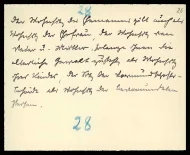 28 28
Der Wohnsitz des Ehemannes gilt auch als
Wohnsitz der Ehefrau, der Wohnsitz von
Vater u. Mutter, solange ihnen die
elterliche Gewalt zusteht, als Wohnsitz
der Kinder, der Sitz der Vormundschafts-
behörde als Wohnsitz der bevormundeten
Person.
28